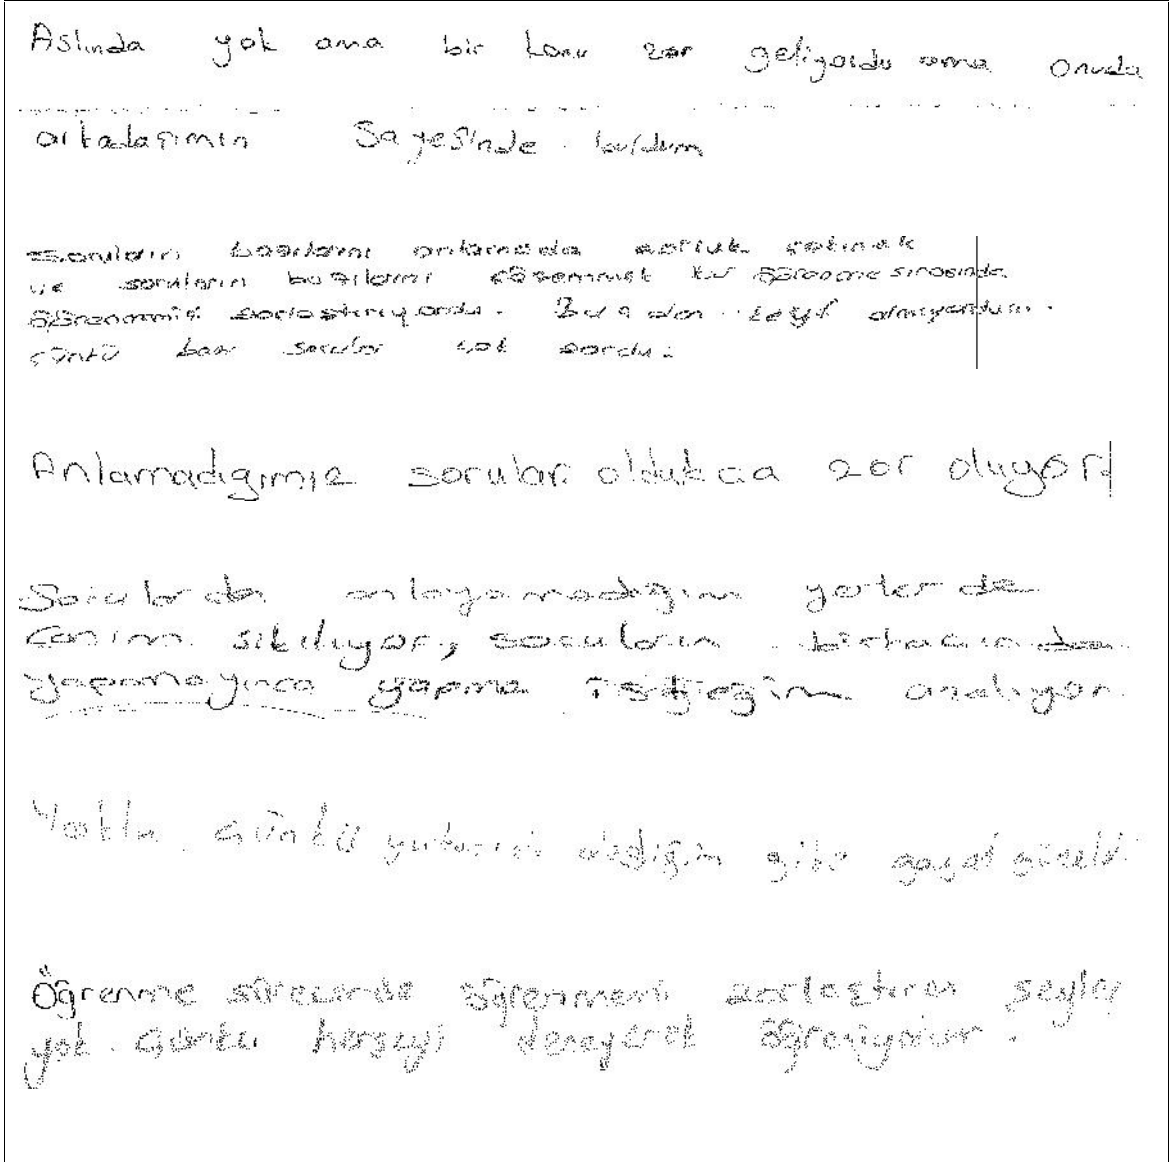 Aslında yok ama bir konu zor geliyordu ama onuda
arkadaşımın sayesinde buldum
Soruların bazılarını anlamada zorluk çekmek
ve soruların bazılarını çözememek bu öğrenme sırasında
öğrenmemizi zorlaştırıyordu. Bu zor keyif almıyordum.
çünkü bazı sorular çok zordu.
Anlamadığımız sorular oldukcaa zor oluyor.
Sorularda anlayamadığım yerlerde
canım sıkılıyor, soruların birkaçını
yapamayınca yapma isteğim azalıyor.
Yoktu. Çünkü yukarıda dediğim gibi gayet güzeldi.
Öğrenme sürecinde öğrenmemi zorlaştıran şeyler
yok. Çünkü herşeyi deneyerek öğreniyorum.